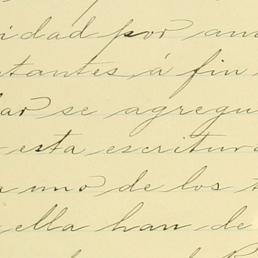 idad por am
tantes á fin
lar se agregu
esta escritura
a uno de los t
ella han de